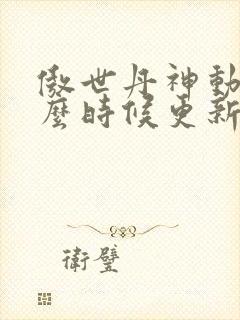 傲世丹神動
麼時候更新
衛璧